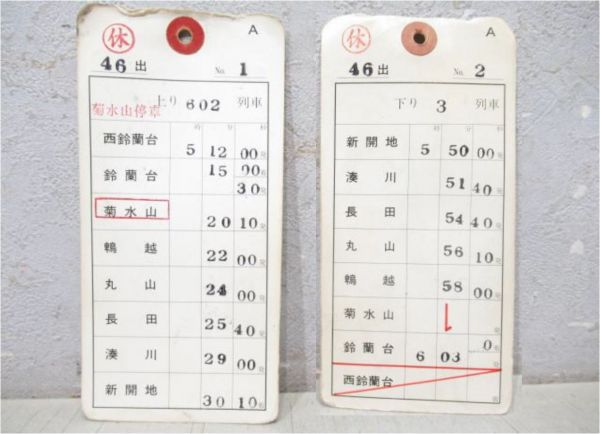 休 A
46出 No. 1
菊水山停車
上り 602 列車
時 分 秒
西鈴蘭台 5 12 00発
鈴蘭台 15 00着
30発
菊水山 20 10発
鵯越 22 00発
丸山 24 00発
長田 25 40発
湊川 29 00発
新開地 30 10着
休 A
46出 No. 2
下り 3 列車
時 分 秒
新開地 5 50 00発
湊川 51 40発
長田 54 40発
丸山 56 10発
鵯越 58 00発
菊水山
鈴蘭台 6 03 0着
西鈴蘭台